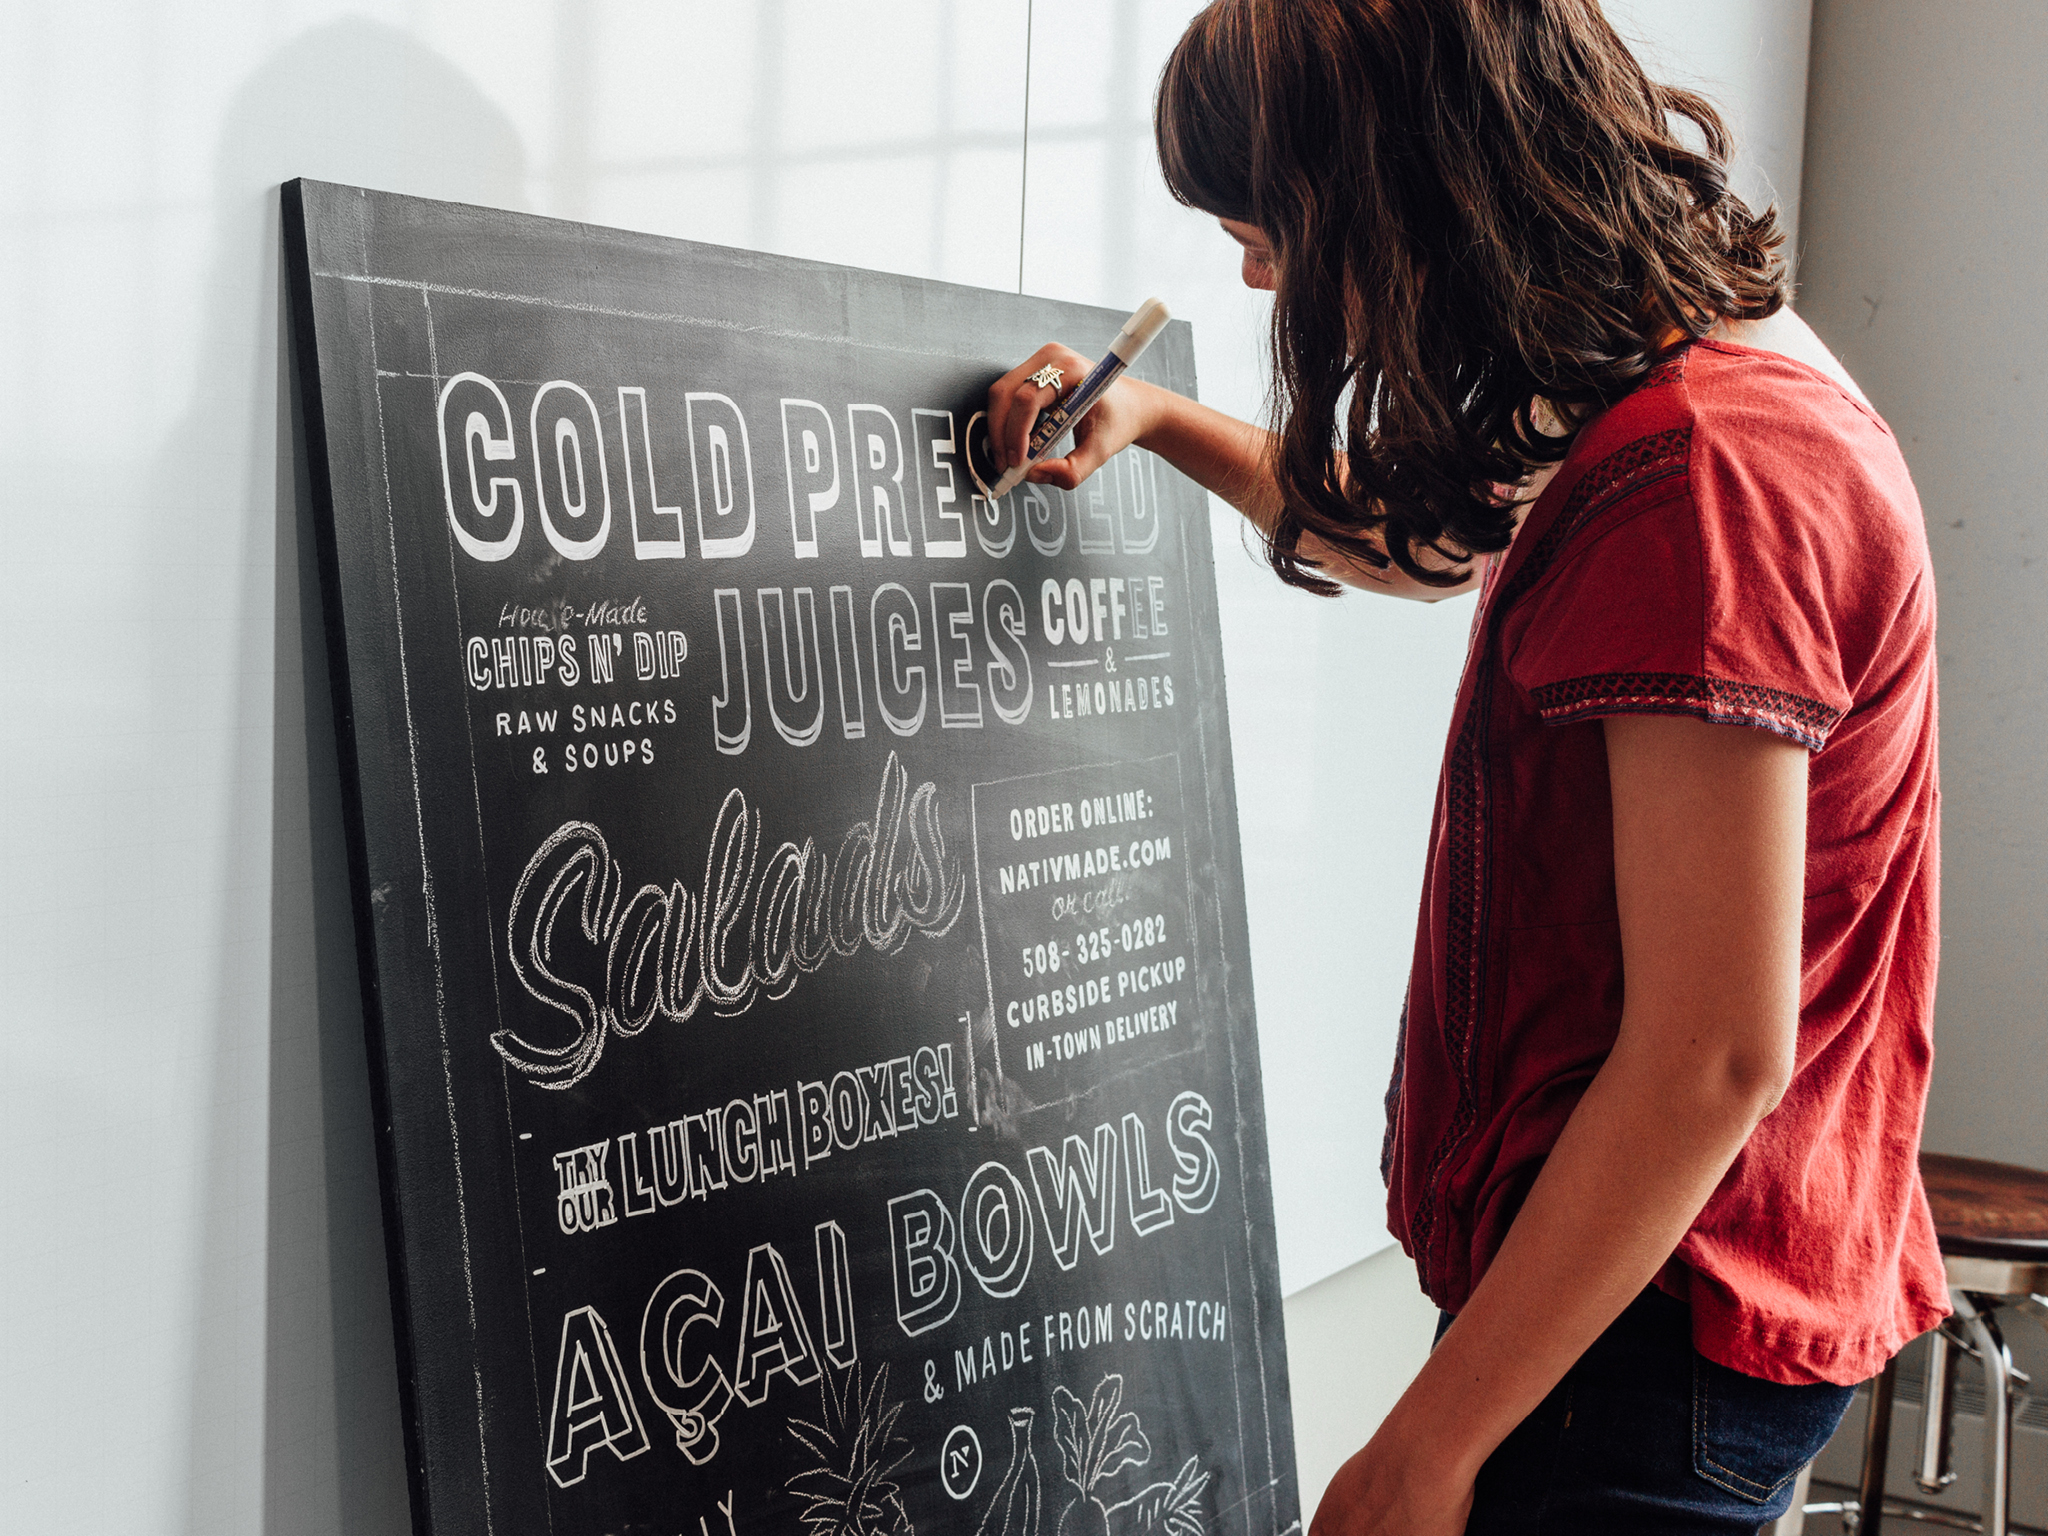 COLD PRESSED
JUICES
COFFEE
&
LEMONADES
House-Made
CHIPS N' DIP
RAW SNACKS
& SOUPS
Salads
ORDER ONLINE:
NATIVMADE.COM
or call:
508-325-0282
CURBSIDE PICKUP
IN-TOWN DELIVERY
TRY
OUR
LUNCH BOXES!
AÇAI BOWLS
& MADE FROM SCRATCH
N